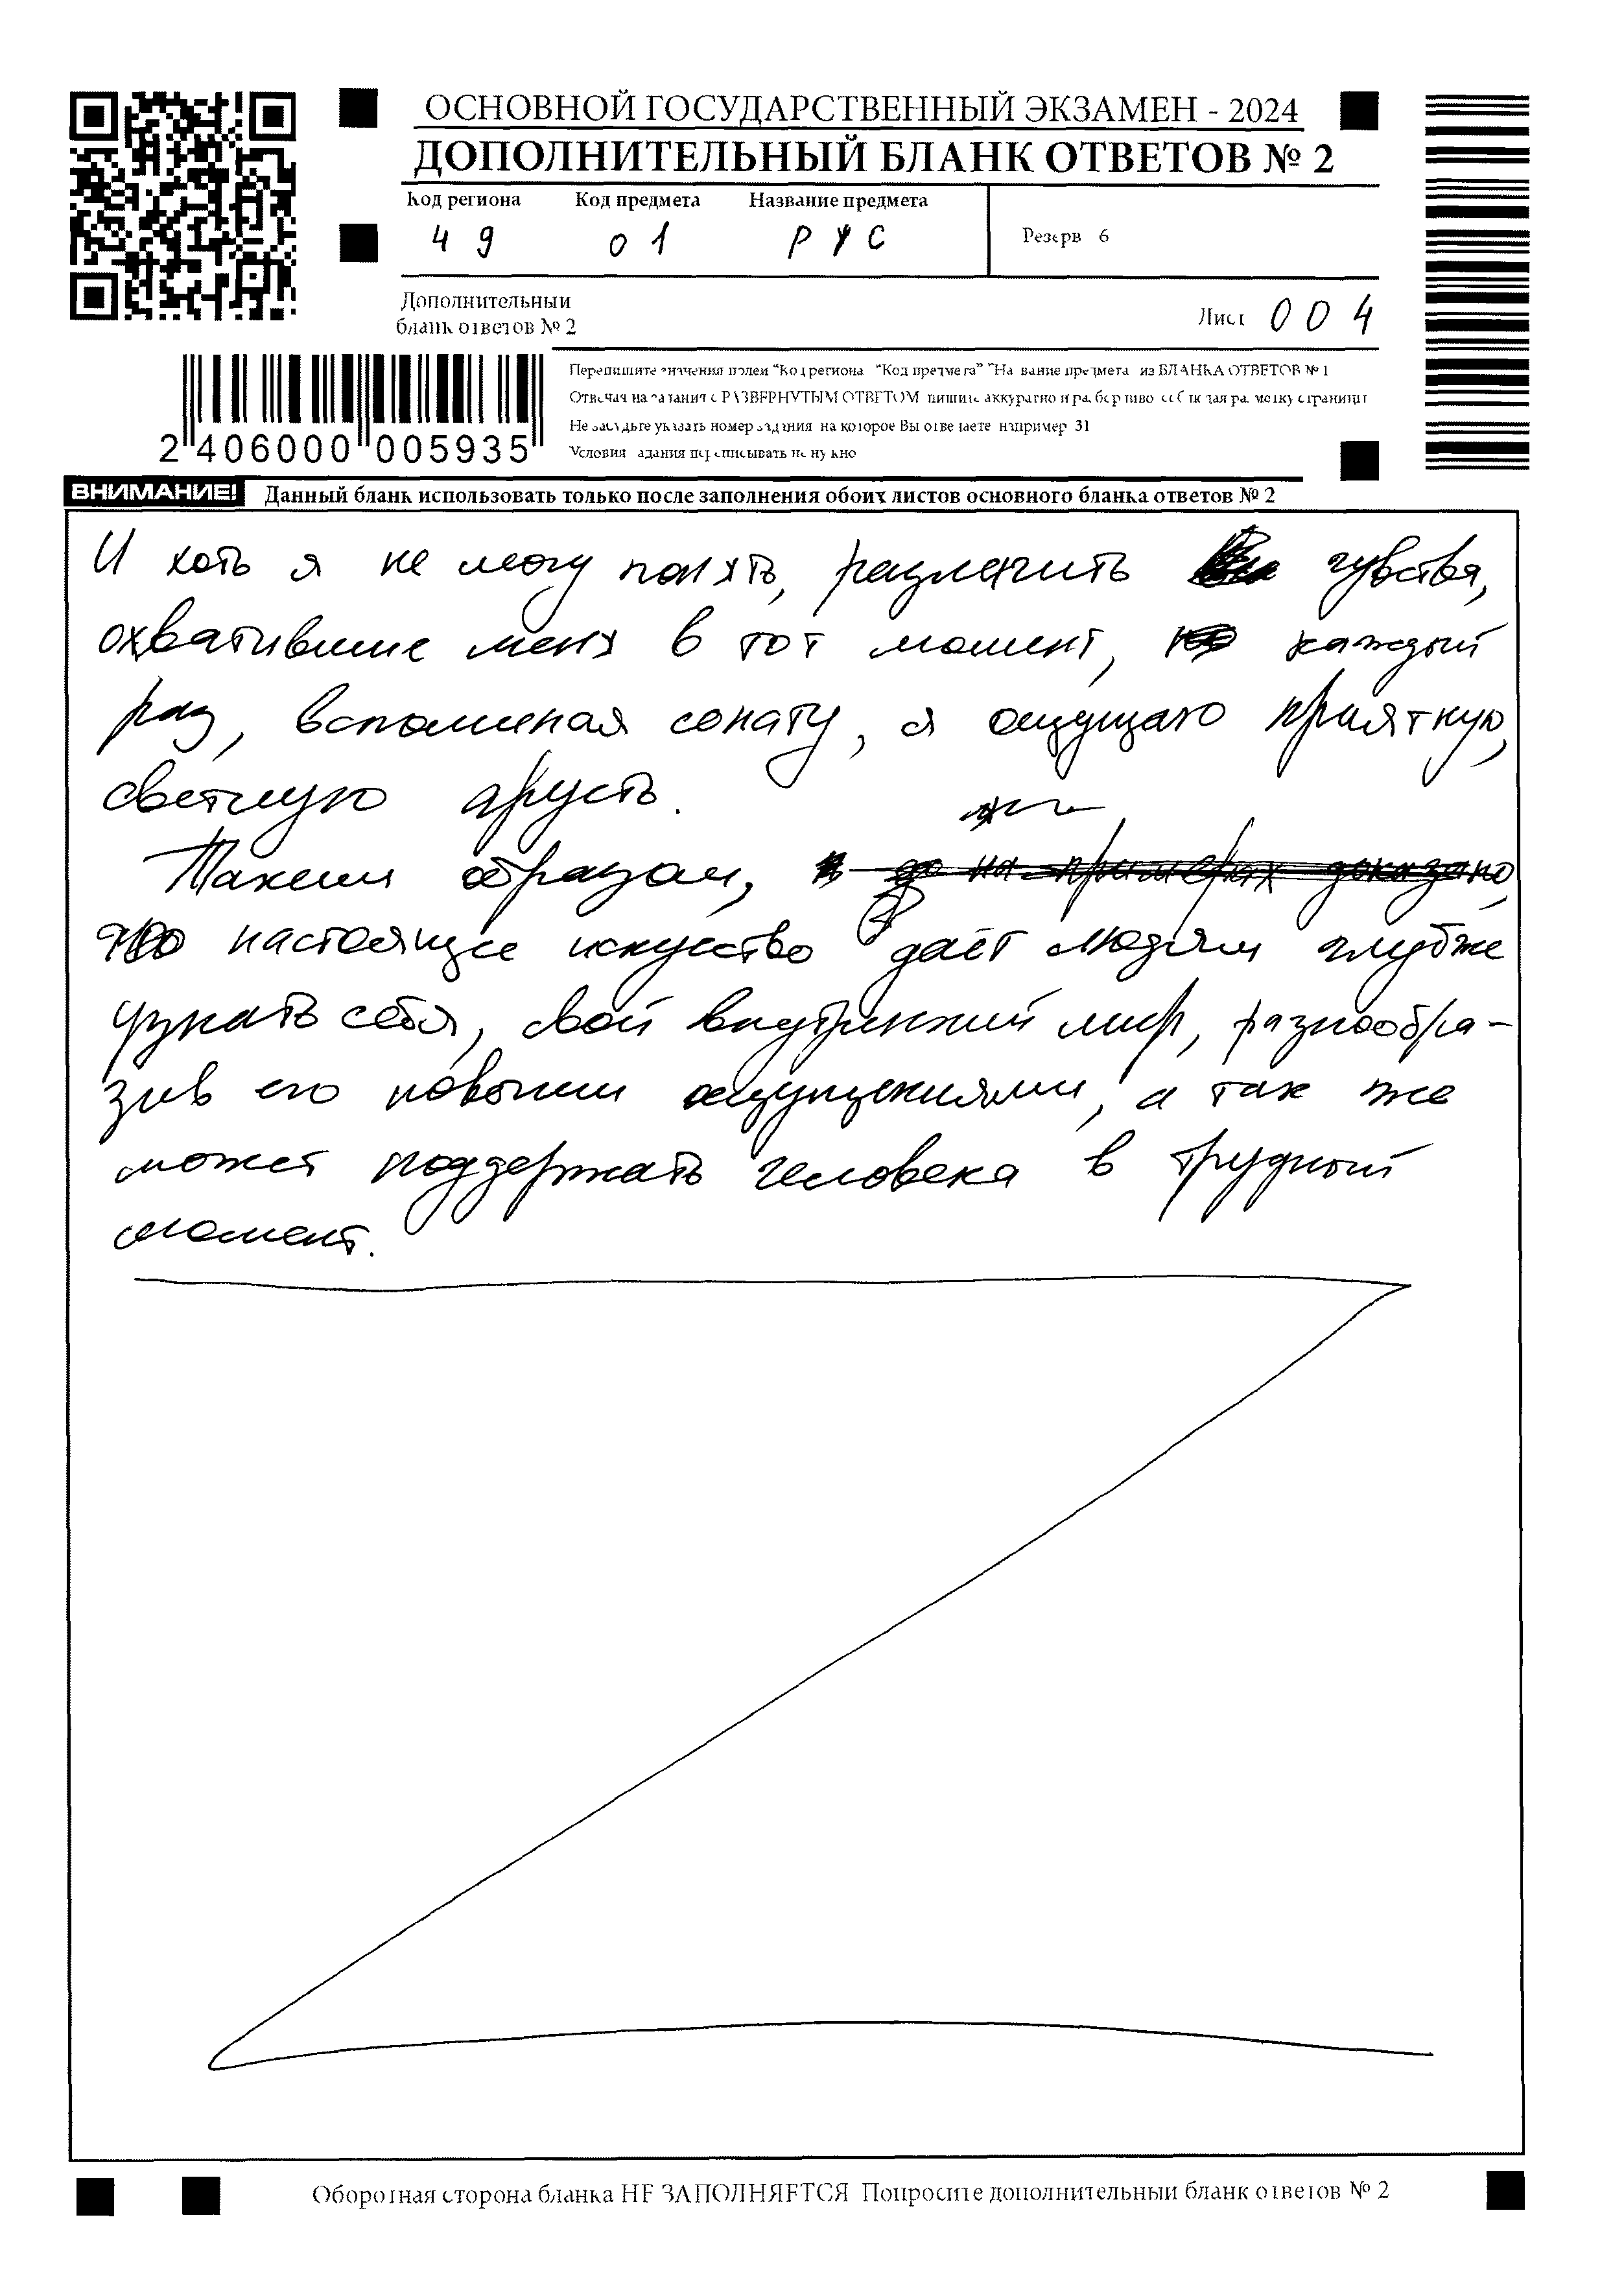 ОСНОВНОЙ ГОСУДАРСТВЕННЫЙ ЭКЗАМЕН - 2024
ДОПОЛНИТЕЛЬНЫЙ БЛАНК ОТВЕТОВ № 2
Код региона Код предмета Название предмета
49 01 РУС
Резерв 6
Дополнительный
бланк ответов № 2
Лист 004
2 406000 005935
Перепишите значения полей "Код региона" "Код предмета" "Название предмета" из БЛАНКА ОТВЕТОВ № 1
Отвечая на задания с РАЗВЕРНУТЫМ ОТВЕТОМ пишите аккуратно и разборчиво соблюдая разметку страницы
Не забудьте указать номер задания на которое Вы отвечаете например 31
Условия задания переписывать не нужно
ВНИМАНИЕ! Данный бланк использовать только после заполнения обоих листов основного бланка ответов № 2
И хоть я не могу понять, различить чувства,
охватившие меня в тот момент, каждый
раз, вспоминая сонату, я ощущаю приятную,
светлую грусть.
Таким образом, на примерах доказано,
что настоящее искусство даёт людям глубже
узнать себя, свой внутренний мир, разнообра-
зив его новыми ощущениями, а так же
может поддержать человека в трудный
момент.
Оборотная сторона бланка НЕ ЗАПОЛНЯЕТСЯ Попросите дополнительный бланк ответов № 2